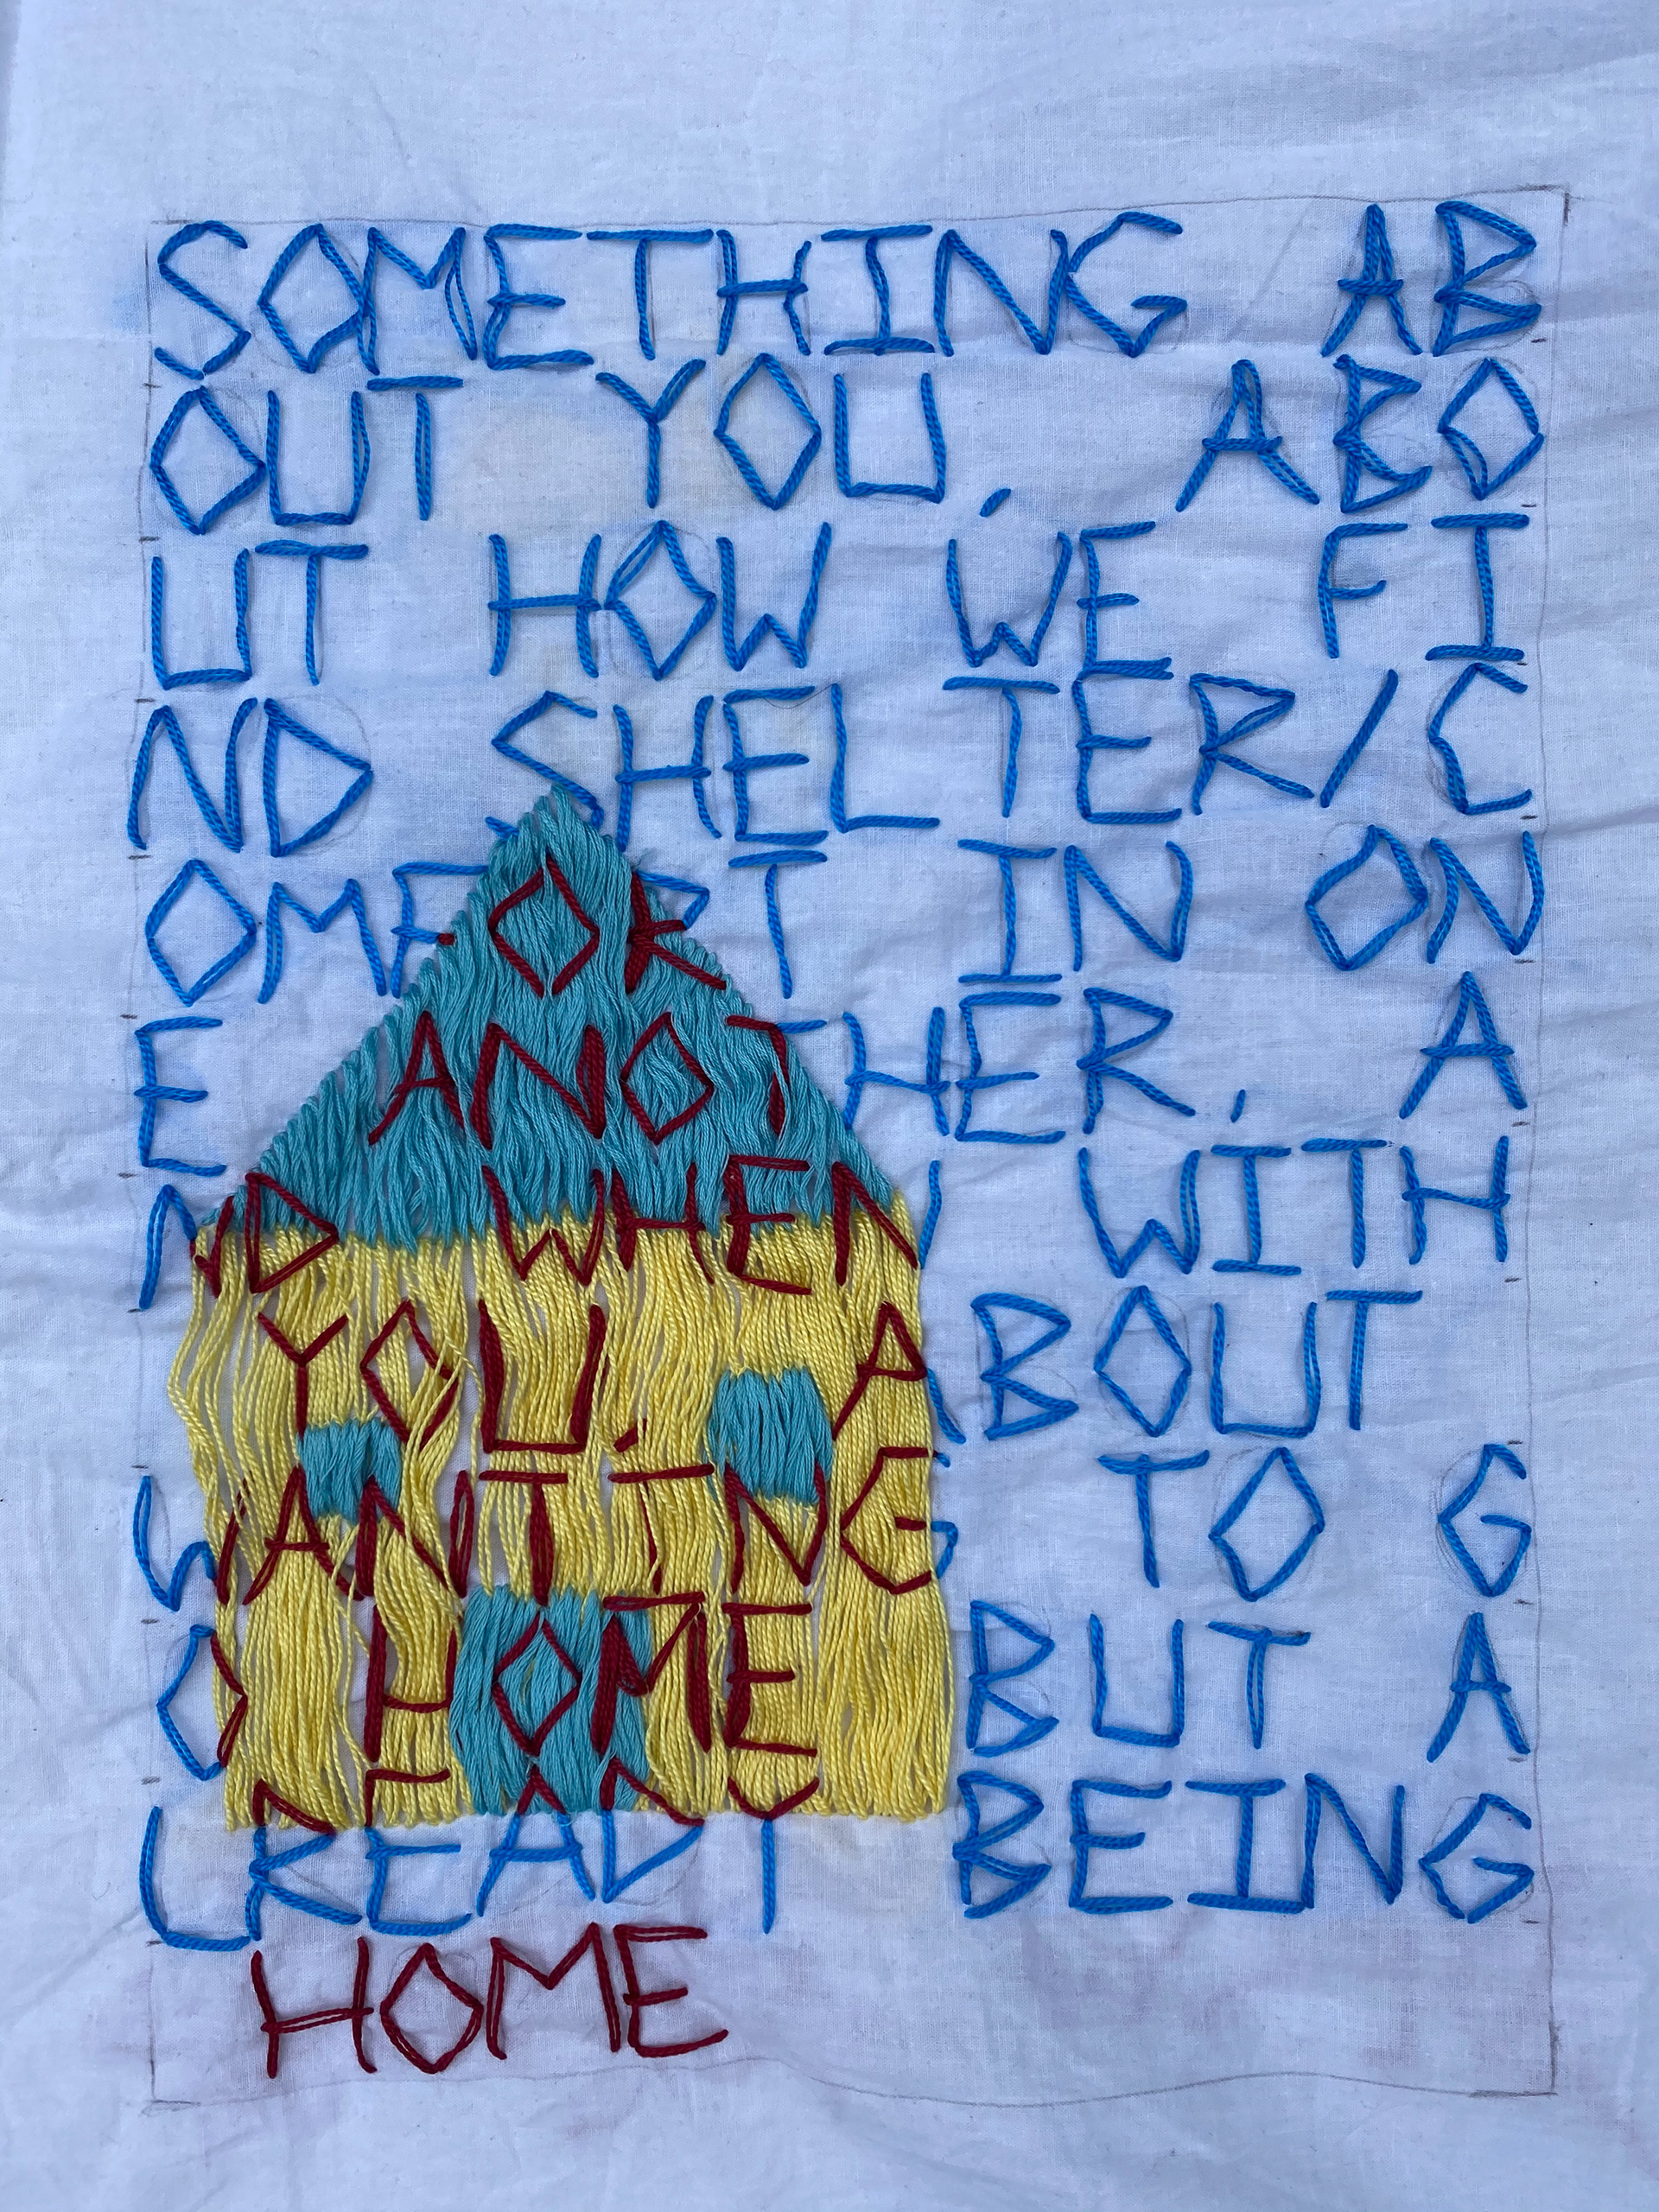 SOMETHING AB
OUT YOU, ABO
UT HOW WE FI
ND SHELTER/C
OMFORT IN ON
E ANOTHER, A
ND WHEN WITH
YOU, ABOUT
WANTING TO G
O HOME BUT A
LREADY BEING
HOME